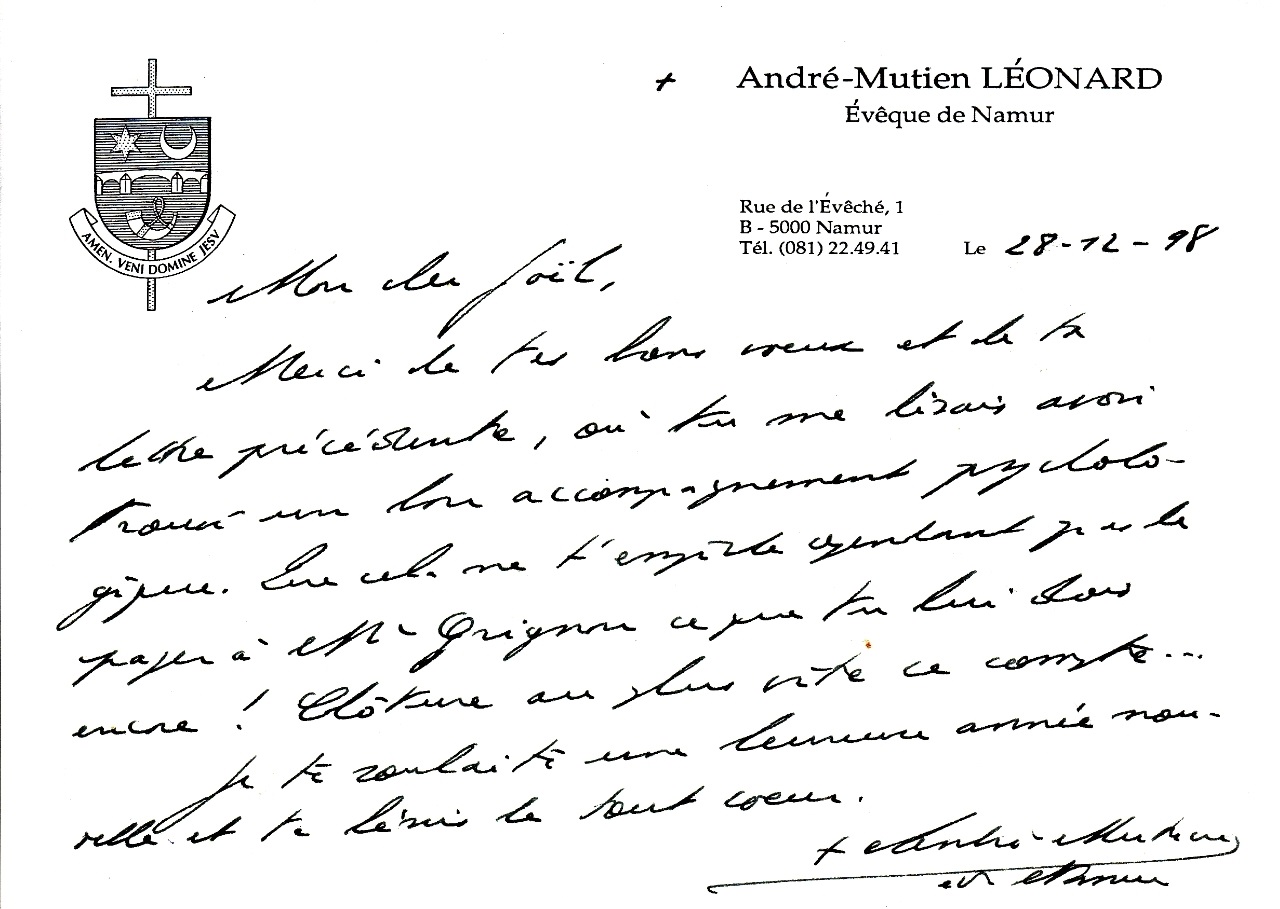 + André-Mutien LÉONARD
Évêque de Namur
Rue de l'Évêché, 1
B - 5000 Namur
Tél. (081) 22.49.41
Le 28-12-98
AMEN. VENI DOMINE JESV
Mon cher Joël,
Merci de tes bons voeux et de ta
lettre précédente, où tu me disais avoir
trouvé un bon accompagnement psycholo-
gique. Que cela ne t'empêche cependant pas de
payer à Mr Grignon ce que tu lui dois
encore ! Clôture au plus vite ce compte...
Je te souhaite une heureuse année nou-
velle et te bénis de tout coeur.
+ André-Mutien
év. Namur